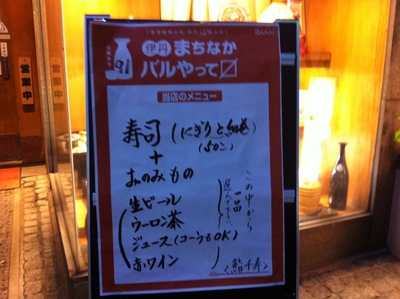 伊丹 まちなか
バルやって〼
91
当店のメニュー
寿司(にぎりと細巻)
(5かこ)
+
おのみもの
生ビール
ウーロン茶
ジュース(コーラもOK)
赤ワイン
この中から
一品
選んで下さい
営業中
営業中